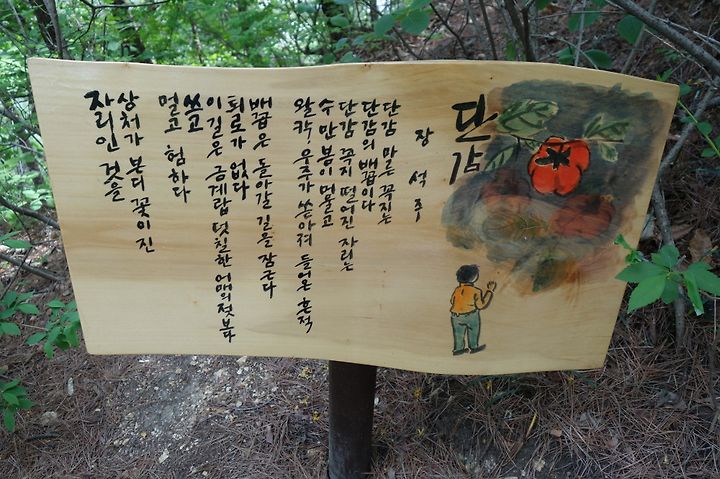 단감
장석주
단감 마른 꼭지는
단감의 배꼽이다
단감 꼭지 떨어진 자리는
수만 봄이 머물고
왈칵, 우주가 쏟아져 들어온 흔적
배꼽은 돌아갈 길을 잠근다
퇴로가 없다
이 길은 금계랍 덧칠한 어매의 젖보다
쓰고
멀고 험하다
상처가 본디 꽃이 진
자리인 것을